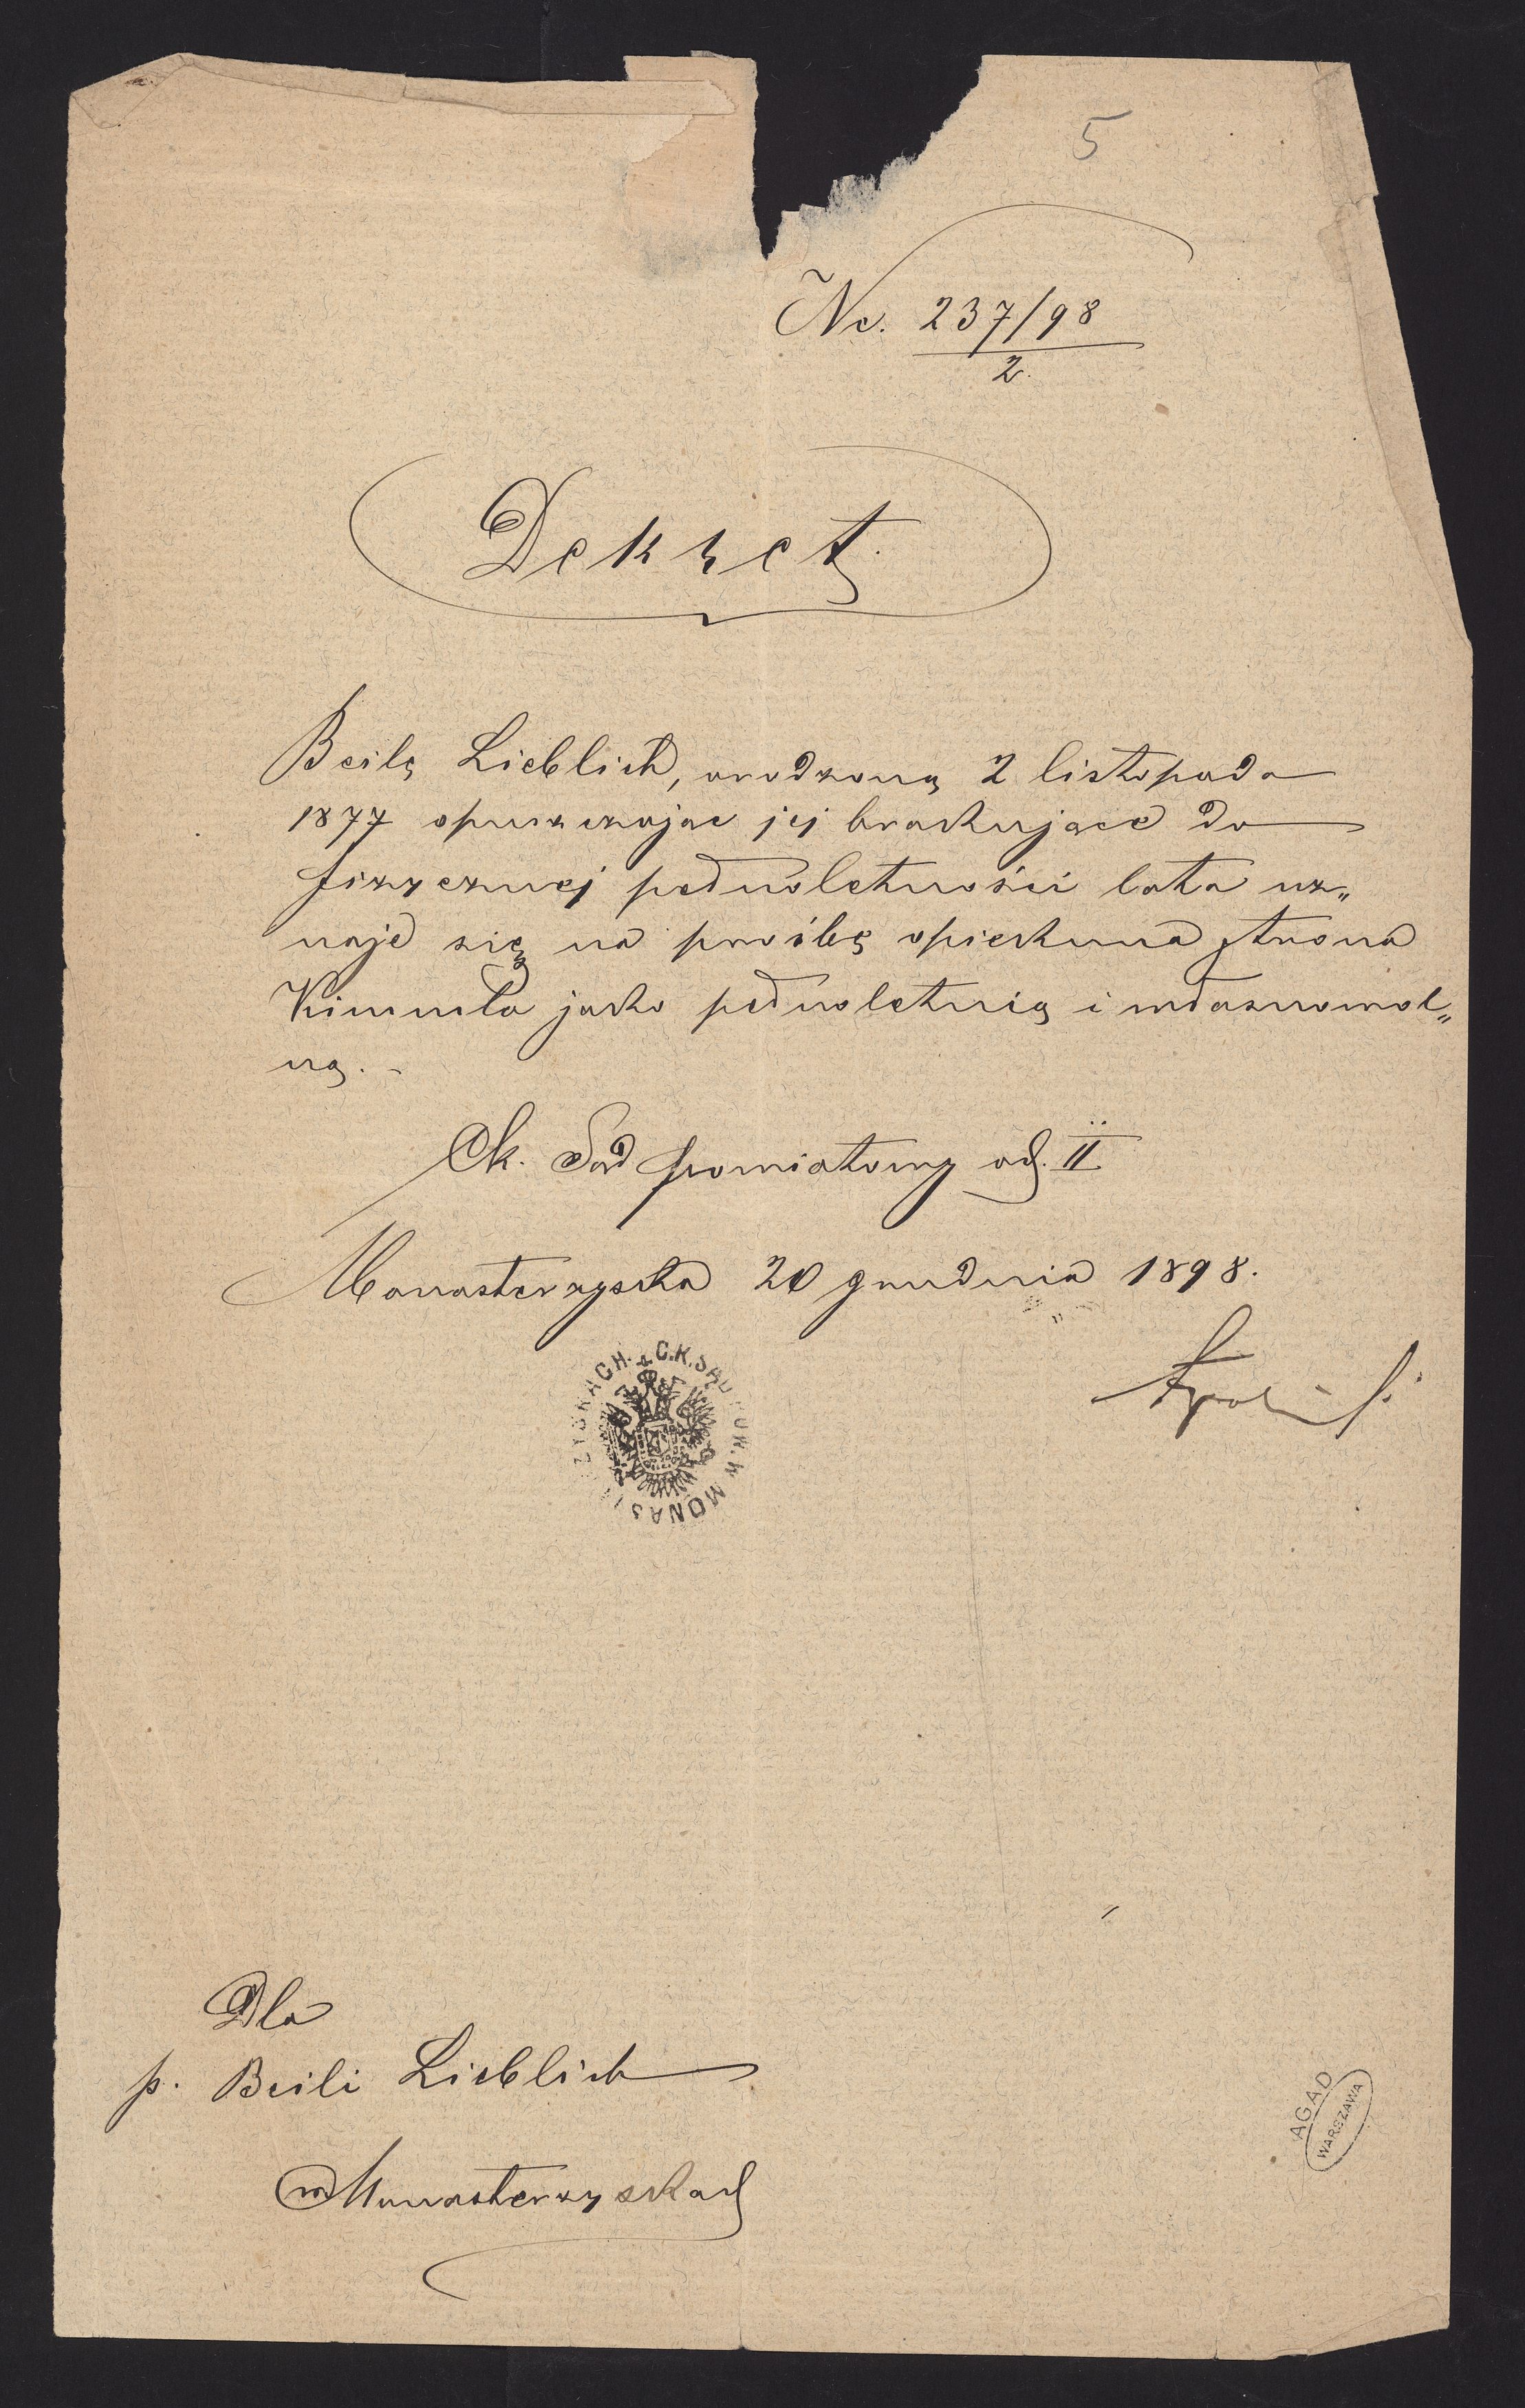 5
Nc. 237/98
2.
Dekret.
Beilę Lieblich, urodzoną 2 listopada
1877 opuszczając jej brakujące do
fizycznej pełnoletności lata uz„
naje się na prośbę opiekuna Arona
Kimmla jako pełnoletnią i własnowol„
ną. -
Ck. Sąd powiatowy od. II
Monasterzyska 20 grudnia 1898.
C.K. SĄD POW. W MONAST ZYSKACH.
Dla
p. Beili Lieblich
w Monasterzyskach
AGAD
WARSZAWA